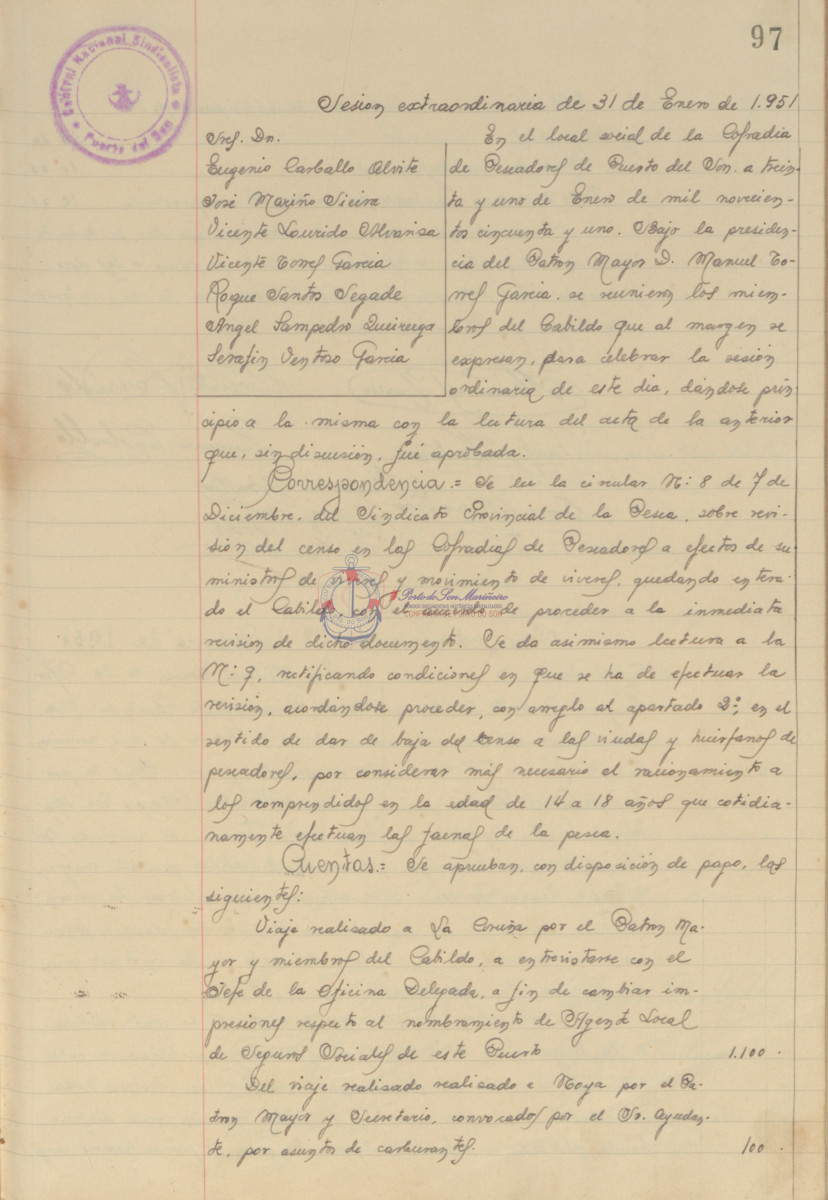 97
Central Nacional Sindicalista
Puerto del Son
Sesion extraordinaria de 31 de Enero de 1.951
Sres. Dn.
Eugenio Carballo Alvite
José Mariño Vieira
Vicente Lourido
Vicente Torres Garcia
Roque Santos Segade
Angel Sampedro Queiruga
Serafin Ventoso Garcia
En el local social de la Cofradia
de Pescadores de Puerto del Son. a trein-
ta y uno de Enero de mil novecien-
tos cincuenta y uno. Bajo la presiden-
cia del Patron Mayor D. Manuel To-
rres Garcia, se reunieron los miem-
bros del Cabildo que al margen se
expresan, para celebrar la sesión
ordinaria de este dia, dándose prin-
cipio a la misma con la lectura del acta de la anterior
que, sin discusión, fué aprobada.
Correspondencia.= Se lee la circular Nº: 8 de 7 de
Diciembre, del Sindicato Provincial de la Pesca, sobre revi-
sión del censo en las Cofradias de Pescadores a efectos de su-
ministros de viveres y movimiento de viveres, quedando entera-
do el Cabildo, con el acuerdo de proceder a la inmediata
revision de dicho documento. Se da asimismo lectura a la
Nº: 9, rectificando condiciones en que se ha de efectuar la
revisión, acordándose proceder, con arreglo al apartado 2º, en el
sentido de dar de baja del censo a las viudas y huérfanos de
pescadores, por considerar más necesario el racionamiento a
los comprendidos en la edad de 14 a 18 años que cotidia-
namente efectuan las faenas de la pesca.
Porto do Son Mariñeiro
Cuentas.= Se aprueban, con disposición de pago, las
siguientes:
Viaje realisado a La Coruña por el Patron Ma-
yor y miembros del Cabildo, a entrevistarse con el
Jefe de la Oficina Delegada, a fin de cambiar im-
presiones respecto al nombramiento de Agente Local
de Seguros Sociales de este Puerto 1.100.
Del viaje realisado realisado e Noya por el Pa-
tron Mayor y Secretario, convocados por el Sr. Ayudan-
te, por asuntos de carburantes. 100.